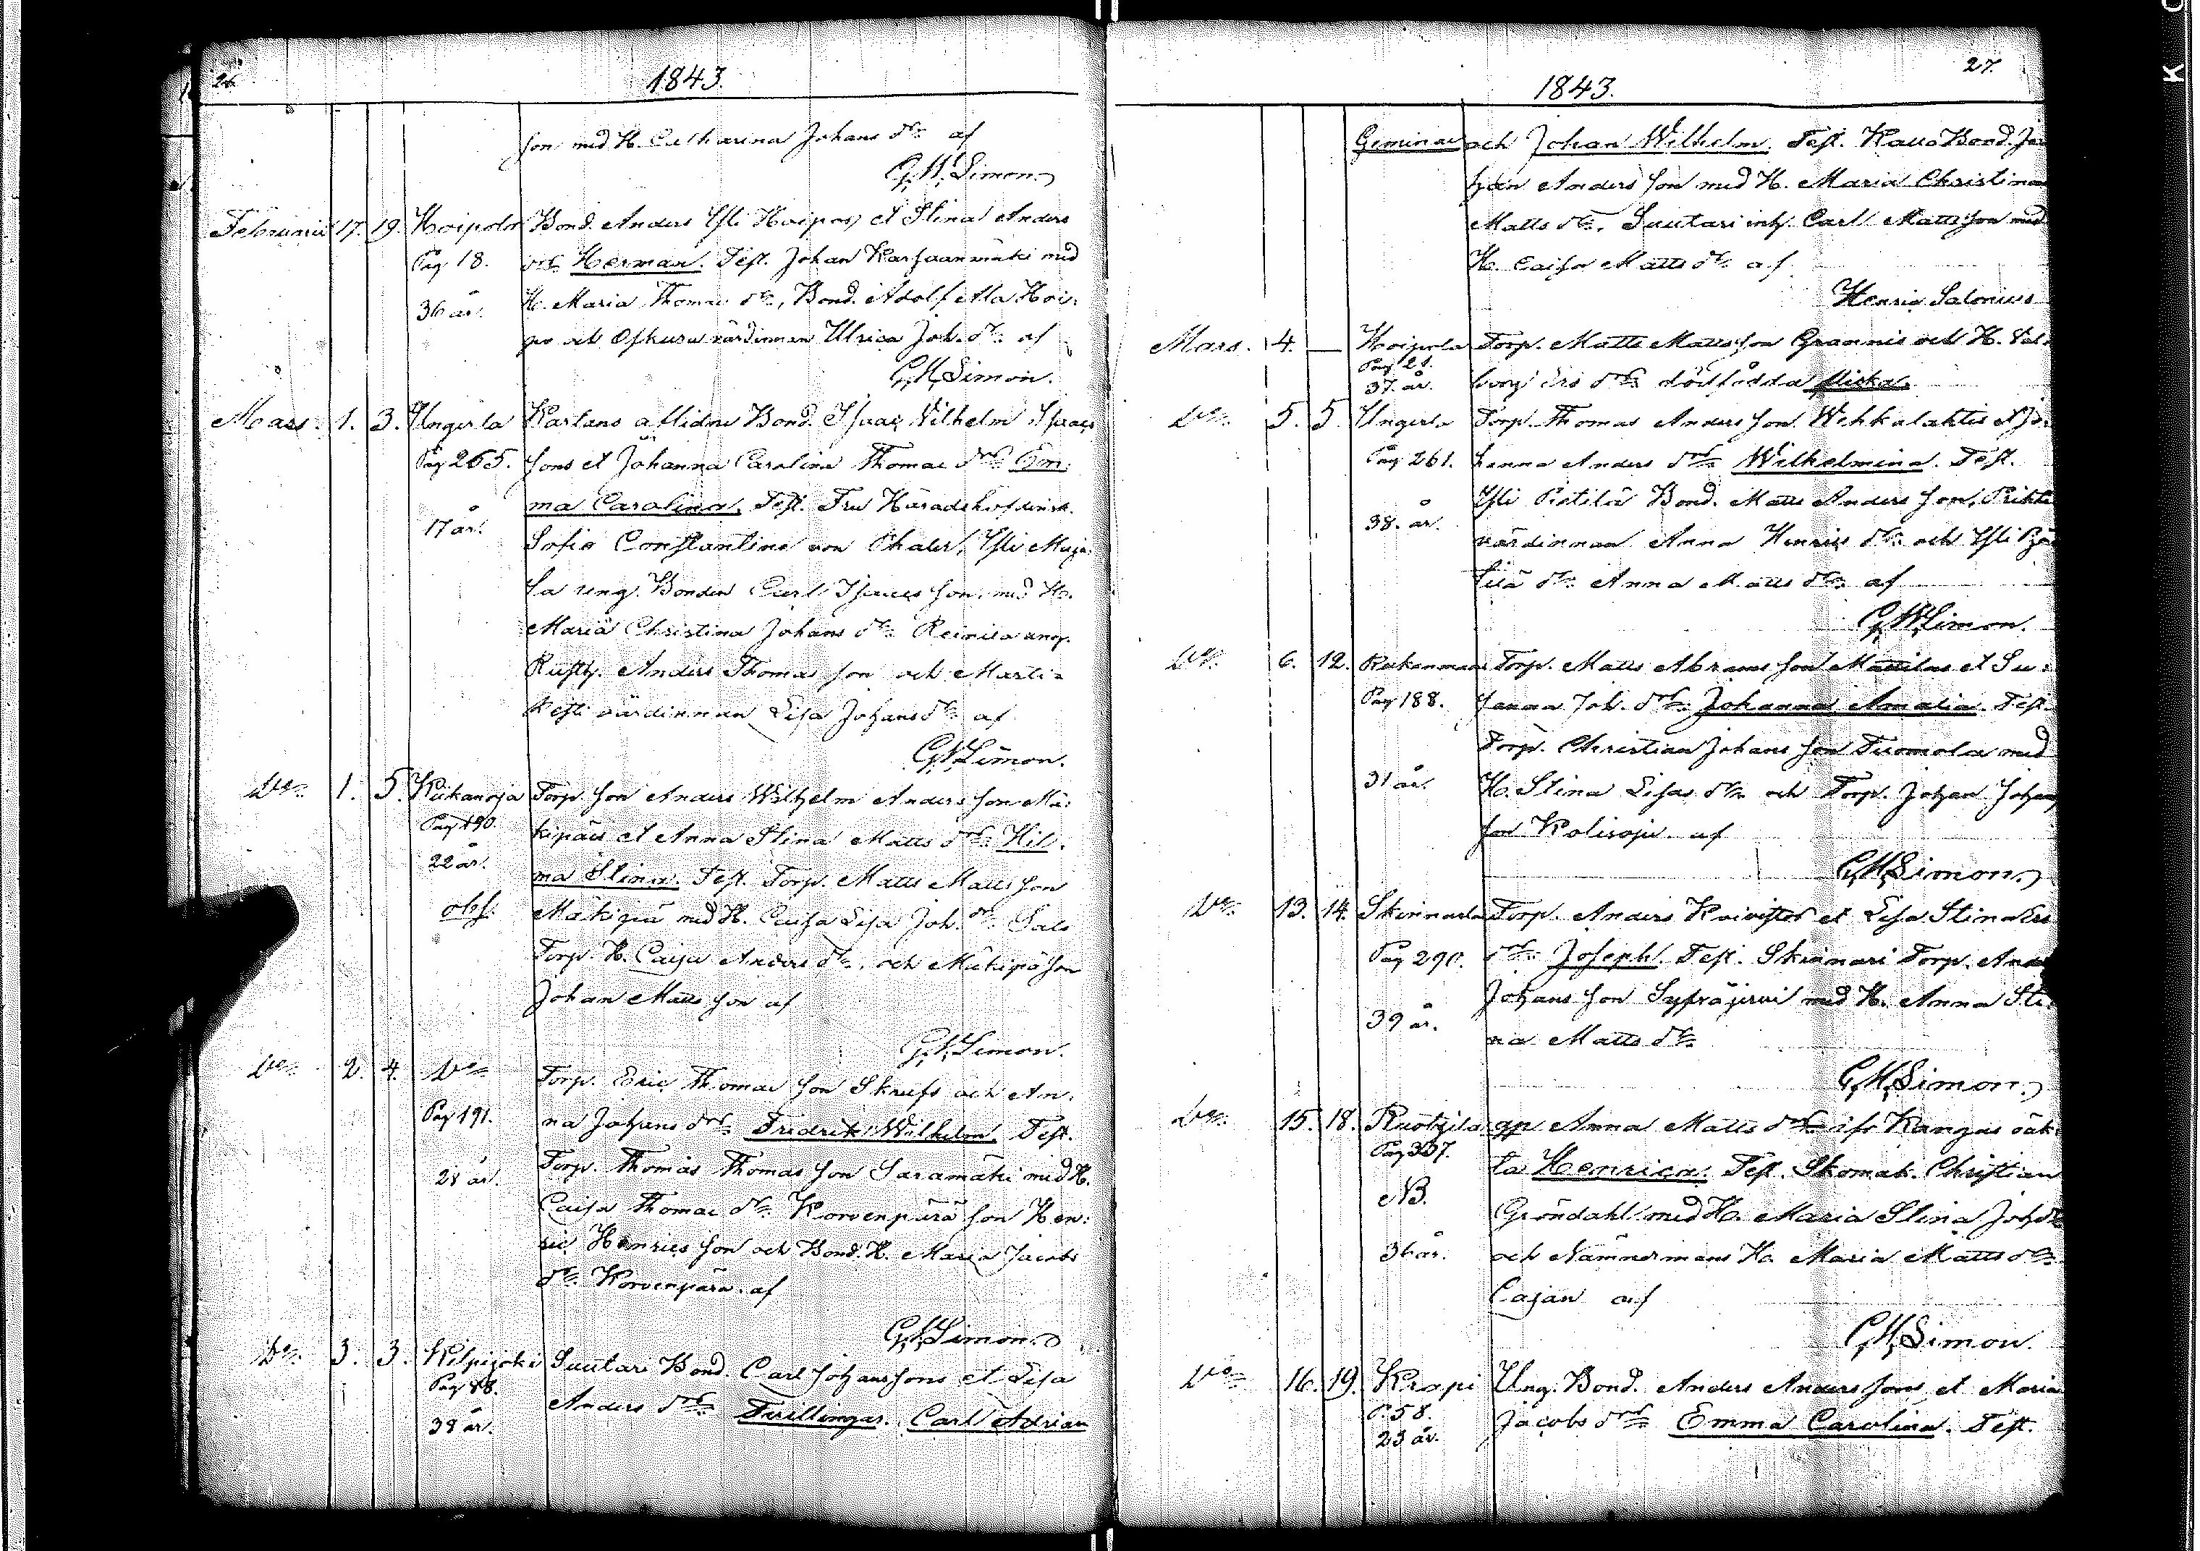 26.
1843.
son med H. Catharina Johans dr af
G.M. Simon.
Februarii 17. 19. Hoipola Bond. Anders Yli Hoipos et Stina Anders
Pag 18. drs Herman. Test. Johan Karhaanmäki med
36 år. H. Maria Thomae dr, Bond. Adolf Ala Hoi-
po och värdinnan Ulrica Joh. dr af
G.M. Simon.
Mars 1. 3. Ungirla Karlans aflidne Bond. Isaac Wilhelm Isaacs
Pag 265. sons et Johanna Carolina Thomae drs Em-
ma Carolina. Test. Fru Häradshöfdinsk.
17 år. Sofie Constantine von Thaler, Yli Maja-
la ung. Bonden Carl Isaacs son med H.
Maria Christina Johans dr Reinila ung.
Rusth. Anders Thomae son och Marti-
värdinnan Lisa Johans dr af
G.M. Simon.
Do 1. 5. Kiikanoja Torp. son Anders Wilhelm Anders son Mä-
Pag 190. kipäis et Anna Stina Matts drs Hil-
22 år. ma Stina. Test. Torp. Matts Matts son
obs. Mäkipää med H. Caisa Lisa Joh. dr Salo
Torp. H. Caisa Anders dr, och Mäkipä son
Johan Matts son af
G.M. Simon.
Do 2. 4. Do Torp. Eric Thomae son Skrefs och An-
Pag 191. na Johans drs Fredrik Wilhelm. Test.
28 år. Torp. Thomas Thomas son Saramäki med H.
Caisa Thomae dr Korvenpää son Hen-
ric Henrics son och Bond. H. Maria Jacobs
dr Korvenpää af
G.M. Simon.
Do 3. 3. Kilpijoki Suutari Bond. Carl Johans sons et Lisa
Pag 88. Anders drs Tvillingar. Carl Adrian
38 år.
27.
1843.
Geminae och Johan Wilhelm. Test. Bond. Jo-
han Anders son med H. Maria Christina
Matts dr, Suutari inh. Carl Matts son med
H. Caisa Matts dr af
Henric Salonius
Mars. 4. — Hoipola Torp. Matts Matts son Grannis och H. Val-
Pag 21. borg Ers drs dödfödda flicka.
37 år.
Do 5. 5. Ungirla Torp. Thomas Anders son Wehkalahtis et Jo-
Pag 261. hanna Anders drs Wilhelmina. Test.
Yli Pietilä Bond. Matts Anders son,
38 år. värdinnan Anna Henrics dr och Yli
dr Anna Matts dr af
G.M. Simon.
Do 6. 12. Torp. Matts Abrams son Mattilas et Su-
Pag 188. sanna Joh. drs Johanna Amalia. Test.
Torp. Christian Johans son Tuomola med
31 år. H. Stina Lisas dr och Torp. Johan Johans
son Kolisoja af
G.M. Simon.
Do 13. 14. Skinnarla Torp. Anders Koivistos et Lisa Stina Ers
Pag 290. drs Joseph. Test. Skinnari Torp. Anders
Johans son Syfräjervi med H. Anna Sti-
39 år. na Matts dr
G.M. Simon.
Do 15. 18. Ruotzila qp Anna Matts drs ifr Kangas oäk-
Pag 337. ta Henrica. Test. Skomak. Christian
NB. Gröndahl med H. Maria Stina Joh. dr
36 år. och Nämnermans H. Maria Matts dr
Cajan af
G.M. Simon.
Do 16. 19. Krapi Ung. Bond. Anders Anders sons et Maria
P. 58. Jacobs drs Emma Carolina. Test.
23 år.